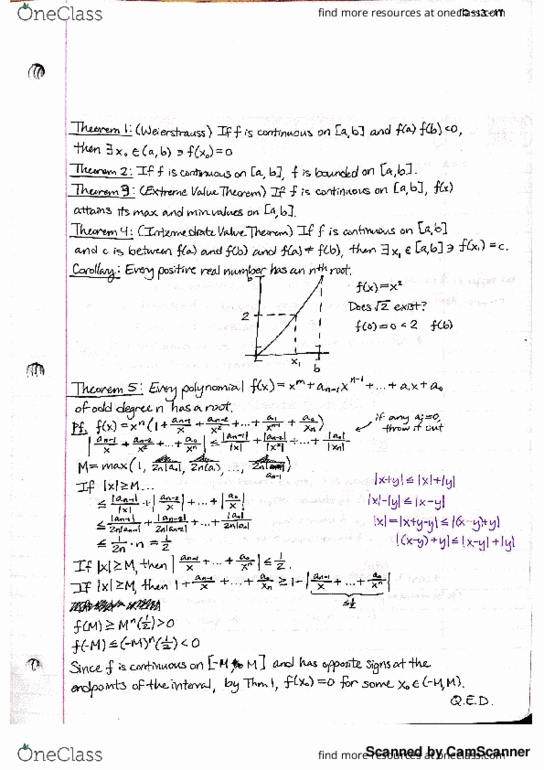 OneClass
find more resources at oneclass.com
Theorem 1: (Weierstrauss) If f is continuous on [a,b] and f(a) f(b)<0,
then ∃ x₀ ∈ (a,b) ∋ f(x₀)=0
Theorem 2: If f is continuous on [a,b], f is bounded on [a,b].
Theorem 3: (Extreme Value Theorem) If f is continuous on [a,b], f(x)
attains its max and min values on [a,b].
Theorem 4: (Intermediate Value Theorem) If f is continuous on [a,b]
and c is between f(a) and f(b) and f(a)≠f(b), then ∃ x₁ ∈ [a,b] ∋ f(x₁)=c.
Corollary: Every positive real number has an nth root.
b
f(x)=x²
2
Does √2 exist?
f(0)=0<2 f(b)
x₁ b
Theorem 5: Every polynomial f(x)=xᵐ+aₙ₋₁xⁿ⁻¹+...+a₁x+a₀
of odd degree n has a root.
Pf. f(x)=xⁿ(1+aₙ₋₁/x+aₙ₋₂/x²+...+a₁/xⁿ⁻¹+a₀/xⁿ)
if any aᵢ=0,
throw it out
|aₙ₋₁/x+aₙ₋₂/x²+...+a₀/xⁿ| ≤ |aₙ₋₁|/|x|+|aₙ₋₂|/|x²|+...+|a₀|/|xⁿ|
M=max(1, 2n|a₀|, 2n|a₁|, ..., 2n|aₙ₋₁|)
If |x|≥M...
|x+y|≤|x|+|y|
≤ |aₙ₋₁|/|x|+|aₙ₋₂/x|+...+|a₀/x|
|x|-|y|≤|x-y|
≤ |aₙ₋₁|/2n|aₙ₋₁|+|aₙ₋₂|/2n|aₙ₋₂|+...+|a₀|/2n|a₀|
|x|=|x+y-y|≤|(x-y)+y|
≤ 1/2n · n = 1/2
|(x-y)+y|≤|x-y|+|y|
If |x|≥M, then |aₙ₋₁/x+...+a₀/xⁿ| ≤ 1/2.
If |x|≥M, then 1+aₙ₋₁/x+...+a₀/xⁿ ≥ 1-|aₙ₋₁/x+...+a₀/xⁿ|
≤1/2
f(M) ≥ Mⁿ(1/2)>0
f(-M) ≤ (-M)ⁿ(1/2)<0
Since f is continuous on [-M, M] and has opposite signs at the
endpoints of the interval, by Thm 1, f(x₀)=0 for some x₀∈(-M,M).
Q.E.D.
OneClass
find more resources at oneclass.com
Scanned by CamScanner